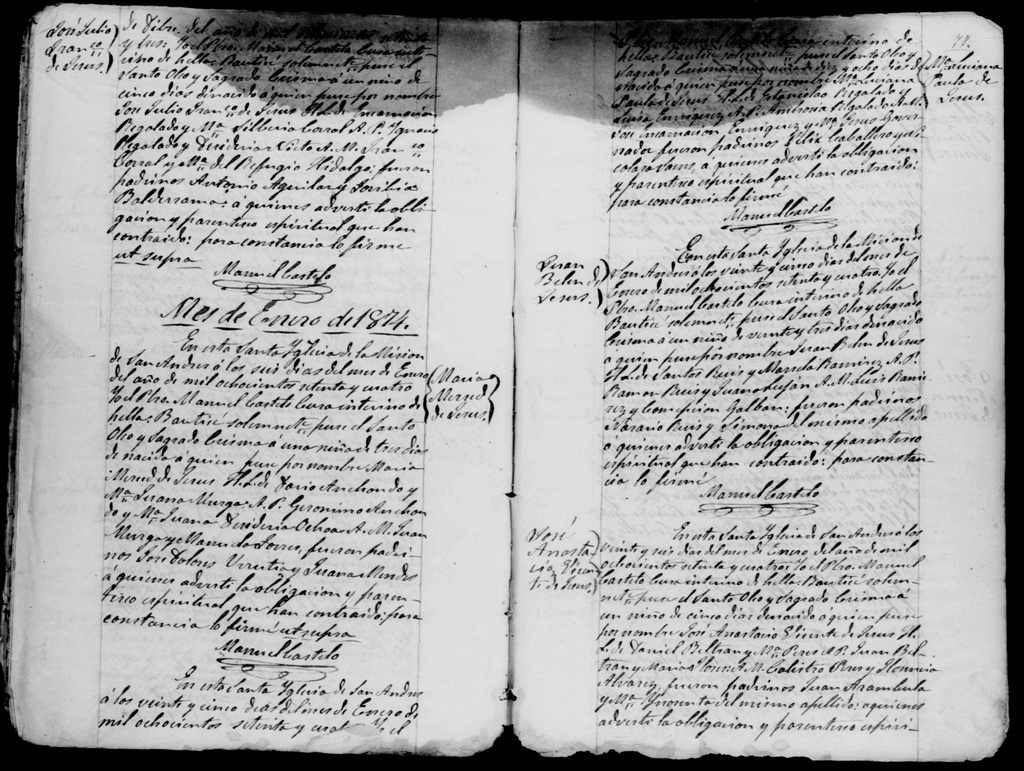 José Julio
Franco
de Jesus.
de Dibre. del año de mil ochocientos setenta
y tres. Yo el Pbro. Manuel Castelo Cura inte-
rino de hella: Bauticé solemnete. puse el
Santo Oleo y Sagrado Crisma á un niño de
cinco dias de nacido á quien puse por nombre
José Julio Franco. de Jesus H. L. de Encarnacion
Regalado y Ma. Silberia Corral A. P. Ignacio
Regalado y Decideria Cito A. M. Franco.
Corral y Ma. del Refugio Hidalgo: fueron
padrinos Antonio Aguilar y
Balderrama: á quienes adverti la obli-
gacion y parentesco espiritual que han
contraido: para constancia lo firmé
ut supra
Manuel Castelo
Mes de Enero de 1874.
En esta Santa Yglecia de la Mision
de San Andres á los seis dias del mes de Enero
del año de mil ochocientos setenta y cuatro
Yo el Pbro. Manuel Castelo Cura interino de
hella: Bauticé solemnete. puse el Santo
Oleo y Sagrado Crisma á una niña de tres dias
de nacida á quien puse por nombre Maria
Merced de Jesus H. L. de Dario Anchondo y
Ma. Susana Murga A. P. Geronimo Anchon
do y Ma. Juana Decideria Ochoa A. M. Juan
Murga y Manuela Torres, fueron padri-
nos José Dolores Urrutia y Juana Mendes
á quienes adverti la obligacion y paren-
tesco espiritual que han contraido: para
constancia lo firmé ut supra
Manuel Castelo
Maria
Merced
de Jesus.
En esta Santa Yglecia de San Andres
á los veinte y cinco dias del mes de Enero de
mil ochocientos setenta y cuat Yo el
74.
interino de
hella: Bauticé solemnete. puse el Santo Oleo y
Sagrado Crisma á una niña diez y ocho dias de
nacida á quien puse por nombre Ma. Luciana
Paula de Jesus H. L. de Estanislao Regalado y
Luisa Enriquez A. P. Ambrocia Regalado A. M.
José Encarnacion Enriquez y Ma. Jesus Gover-
nador fueron padrinos Felix Caballero y Ni-
colasa Saens, á quienes adverti la obligacion
y parentesco espiritual que han contraido:
para constancia lo firmé
Manuel Castelo
Ma. Luciana
Paula de
Jesus.
Juan
Belen de
Jesus.
En esta Santa Yglecia de la Mision de
San Andres á los veinte y cinco dias del mes de
Enero de mil ochocientos setenta y cuatro. Yo el
Pbro. Manuel Castelo Cura interino de hella
Bauticé solemnete. puse el Santo Oleo y Sagrado
Crisma á un niño de veinte y tres dias de nacido
á quien puse por nombre Juan Belen de Jesus
H. L. de Santos Ruis y Marcela Ramirez A. P.
Ramon Ruis y Juana Lujan A. M. Luis Rami-
rez y Concepcion Galban: fueron padrinos
Nasario Ruis y Simona del mismo apellido
á quienes adverti la obligacion y parentesco
espiritual que han contraido: para constan-
cia lo firmé
Manuel Castelo
José
Anasta
cio Vicen
te de Jesus.
En esta Santa Yglecia de San Andres á los
veinte y seis dias del mes de Enero del año de mil
ochocientos setenta y cuatro: Yo el Pbro. Manuel
Castelo Cura interino de hella: Bauticé solem-
nete. puse el Santo Oleo y Sagrado Crisma á
un niño de cinco dias de nacido á quien puse
por nombre José Anastacio Vicente de Jesus H.
L. de Daniel Beltran y Ma. Peres A. P. Juan Bel-
tran y Maria Flores A. M. Calistro Peres y Florencia
Alvarez, fueron padrinos Juan Arambula
y Ma. Ynosenta del mismo apellido: á quienes
adverti la obligacion y parentesco espiri-